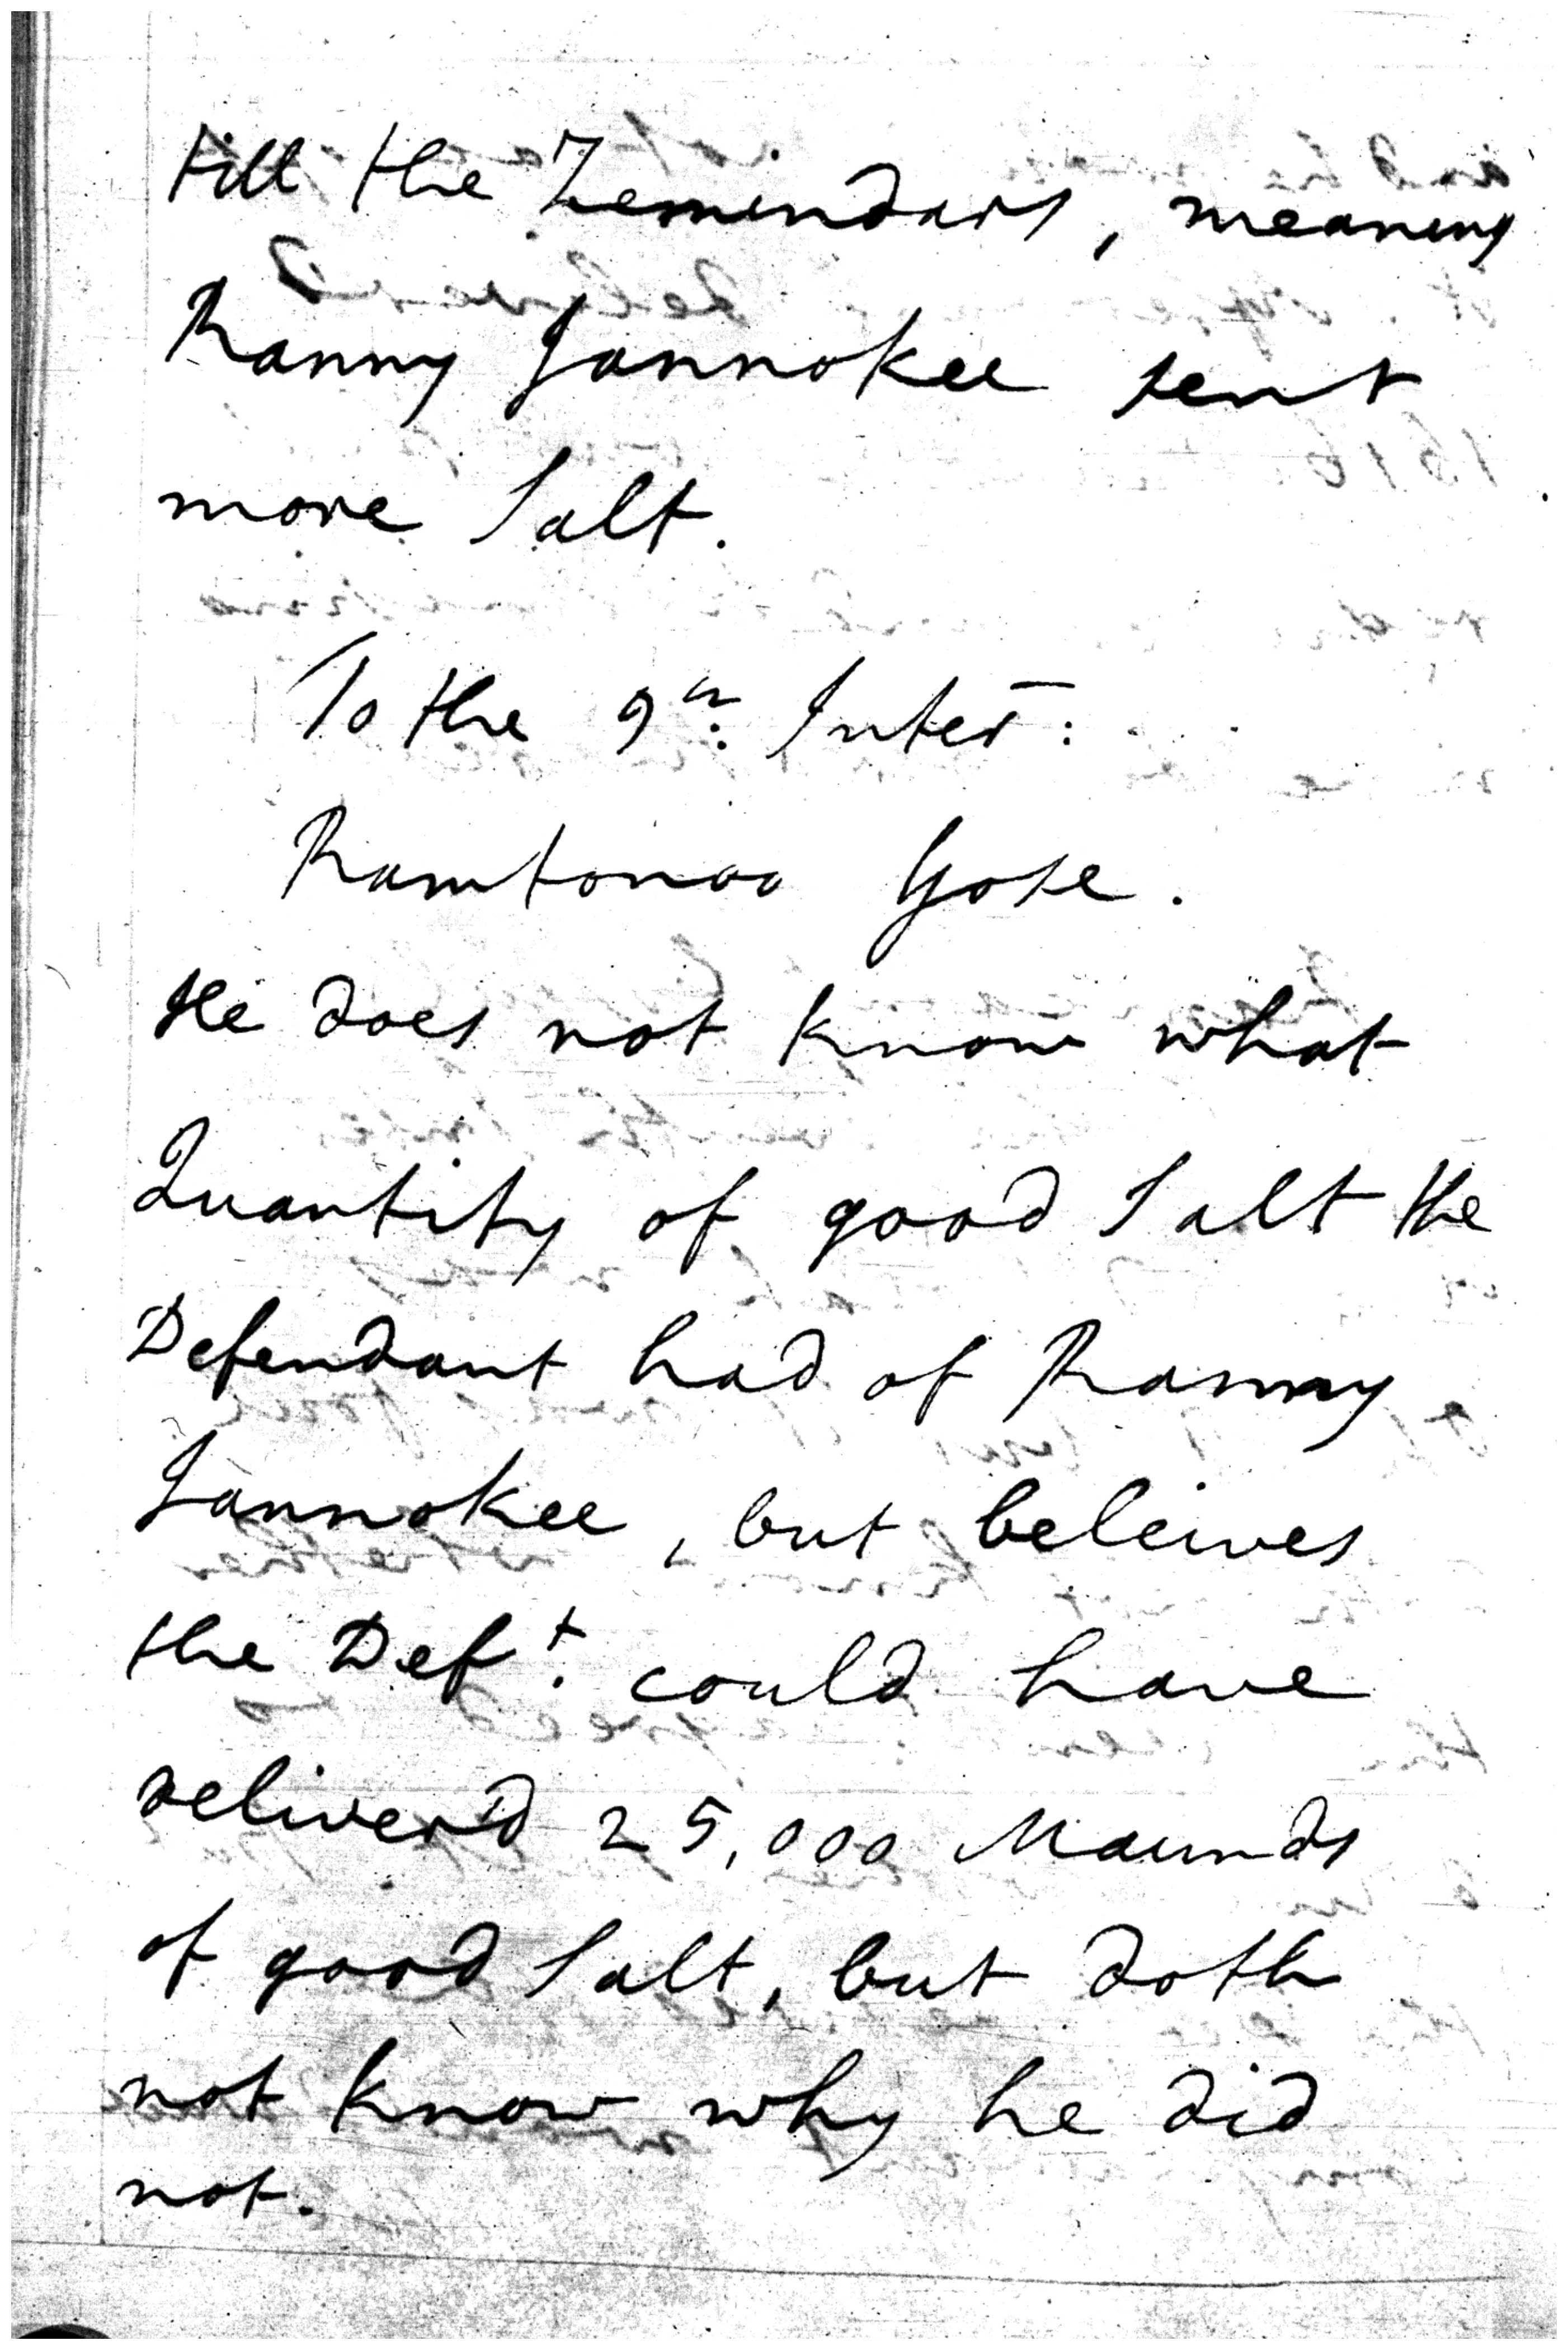 till the Zemindars, meaning
Ranny Jannokee sent
more Salt.
To the 9th. Inter:
Ramtonoo Gose.
He does not know what
Quantity of good Salt the
Defendant had of Ranny
Jannokee, but beleives
the Deft. could have
deliver'd 25,000 Maunds
of good Salt, but doth
not know why he did
not.